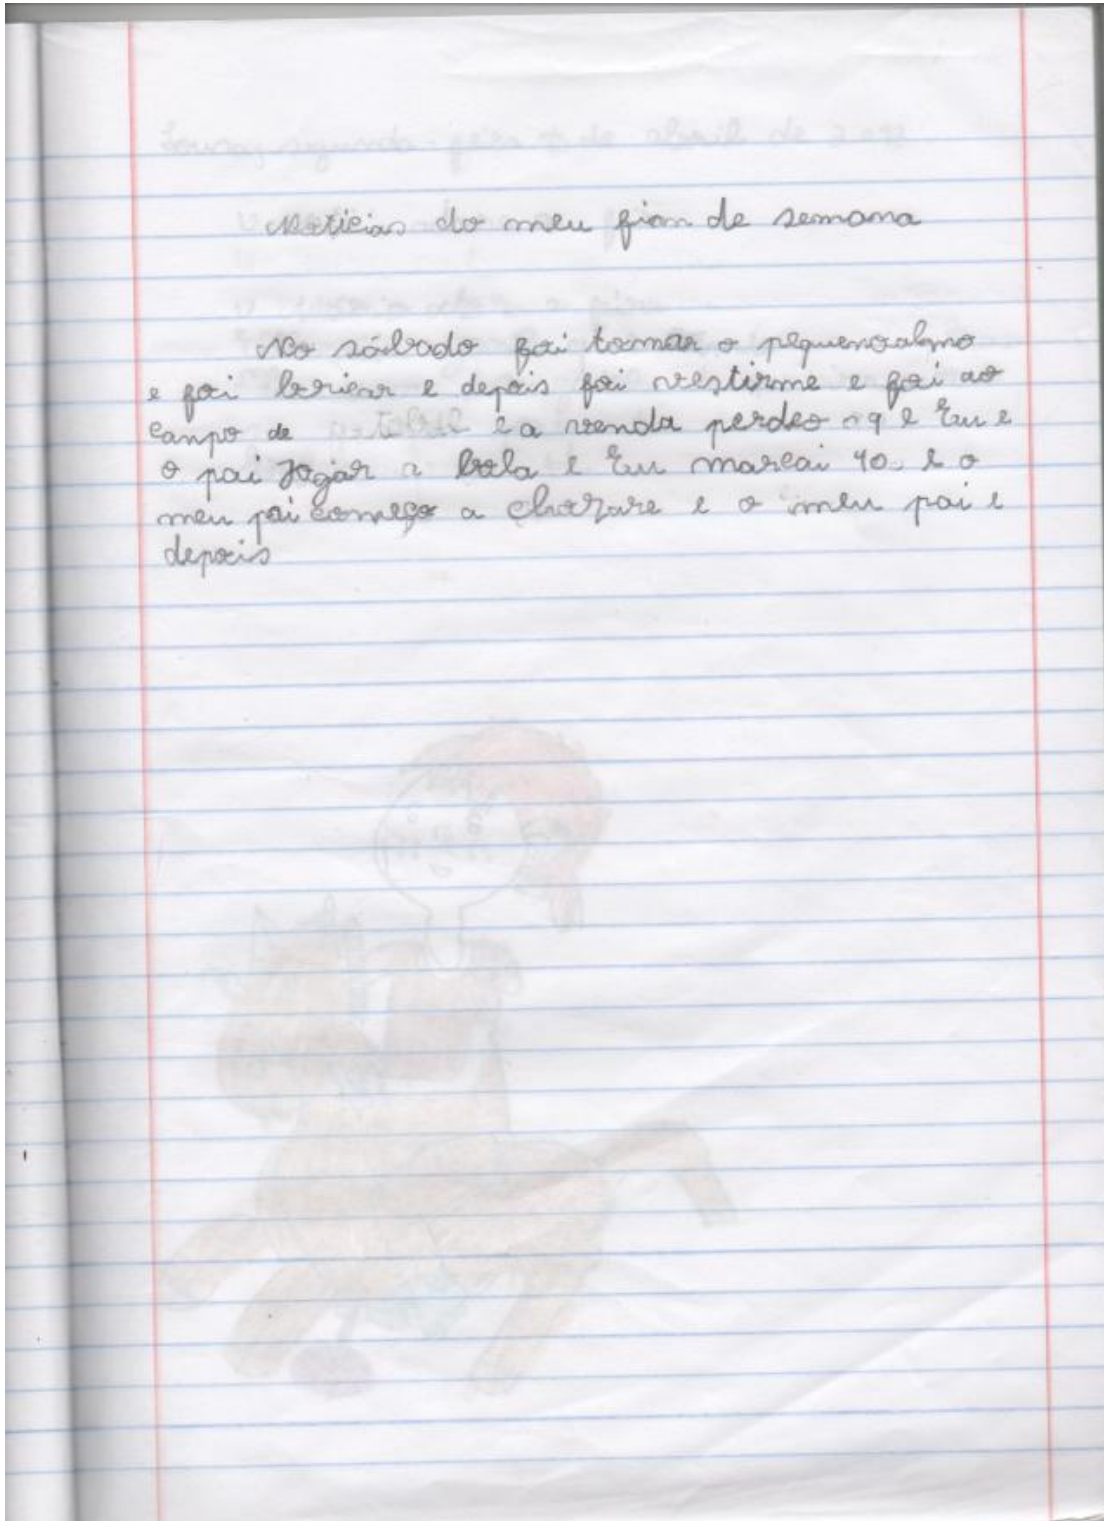 Noticias do meu fiam de semana
No sábado foi tomar o pequenoalmo
e foi bricar e depois foi vestirme e foi ao
canpo de e a venda perdeo 9 e Eu e
o pai Jogar a bola e Eu marcai 10 e o
meu pai começo a chorare e o meu pai e
depois